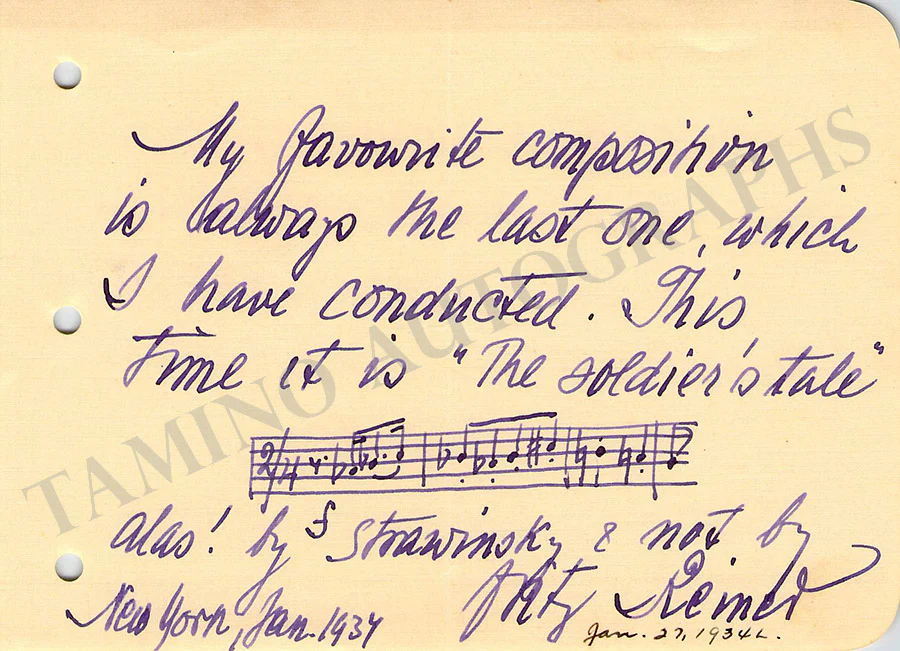 My favourite composition
is always the last one, which
I have conducted. This
time it is "The soldier's tale"
2/4
f
alas! by Strawinsky & not by
Fritz Reiner
New York, Jan. 1934
Jan. 27, 1934
TAMINO AUTOGRAPHS